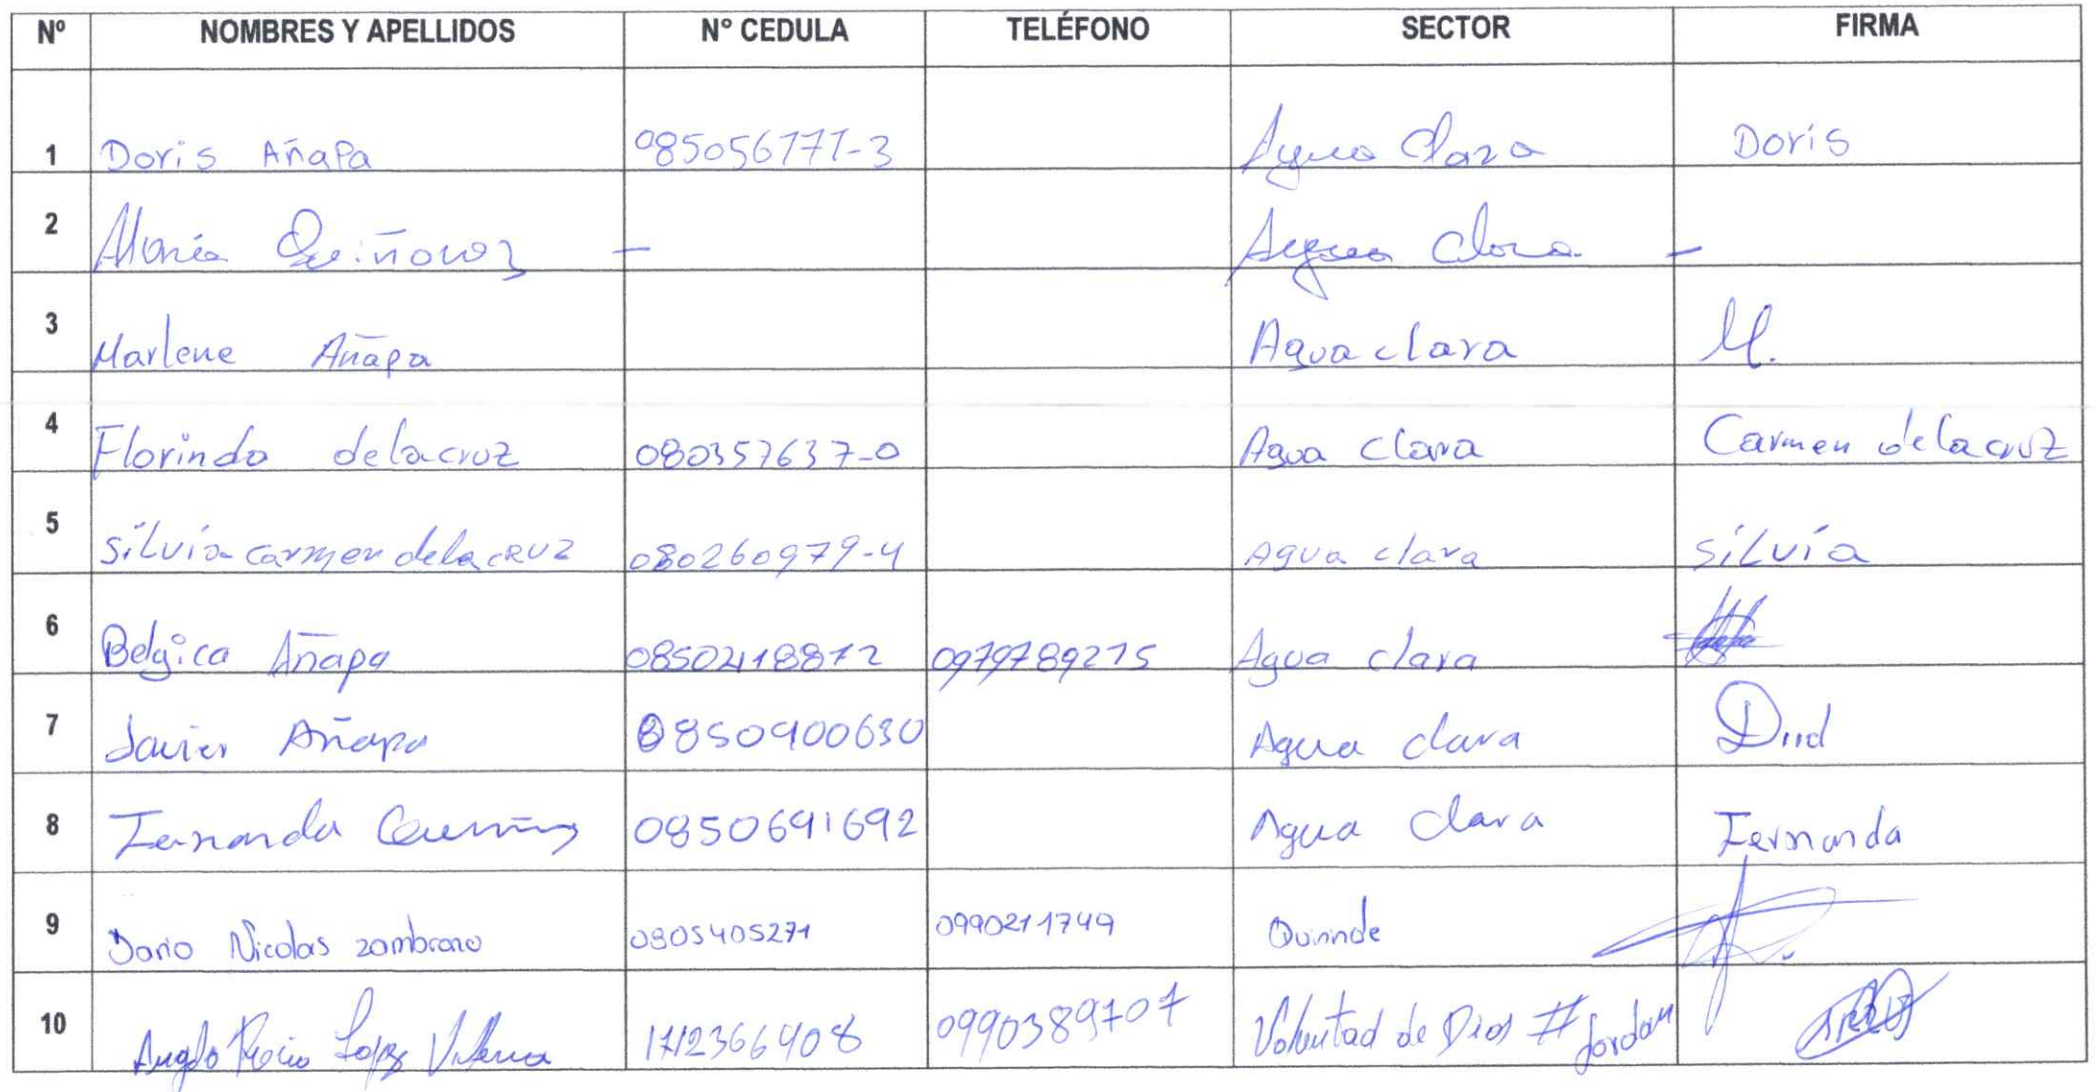 Nº NOMBRES Y APELLIDOS Nº CEDULA TELÉFONO SECTOR FIRMA
1 Doris Añapa 085056177-3 Agua Clara Doris
2 María Quiñonez - Agua Clara -
3 Marlene Añapa Agua clara M.
4 Florinda delacruz 080357637-0 Agua clara Carmen delacruz
5 Silvia Carmen delacruz 080260979-4 Agua clara Silvia
6 Belgica Añapa 0979789275 Agua clara
7 Javier Añapa 0850900630 Agua clara
8 Fernanda 0850691692 Agua clara Fernanda
9 Dario Nicolas zambrano 0805405271 0990211749 Quininde
10 Lopez 0990389707 Voluntad de Dios # Jordan